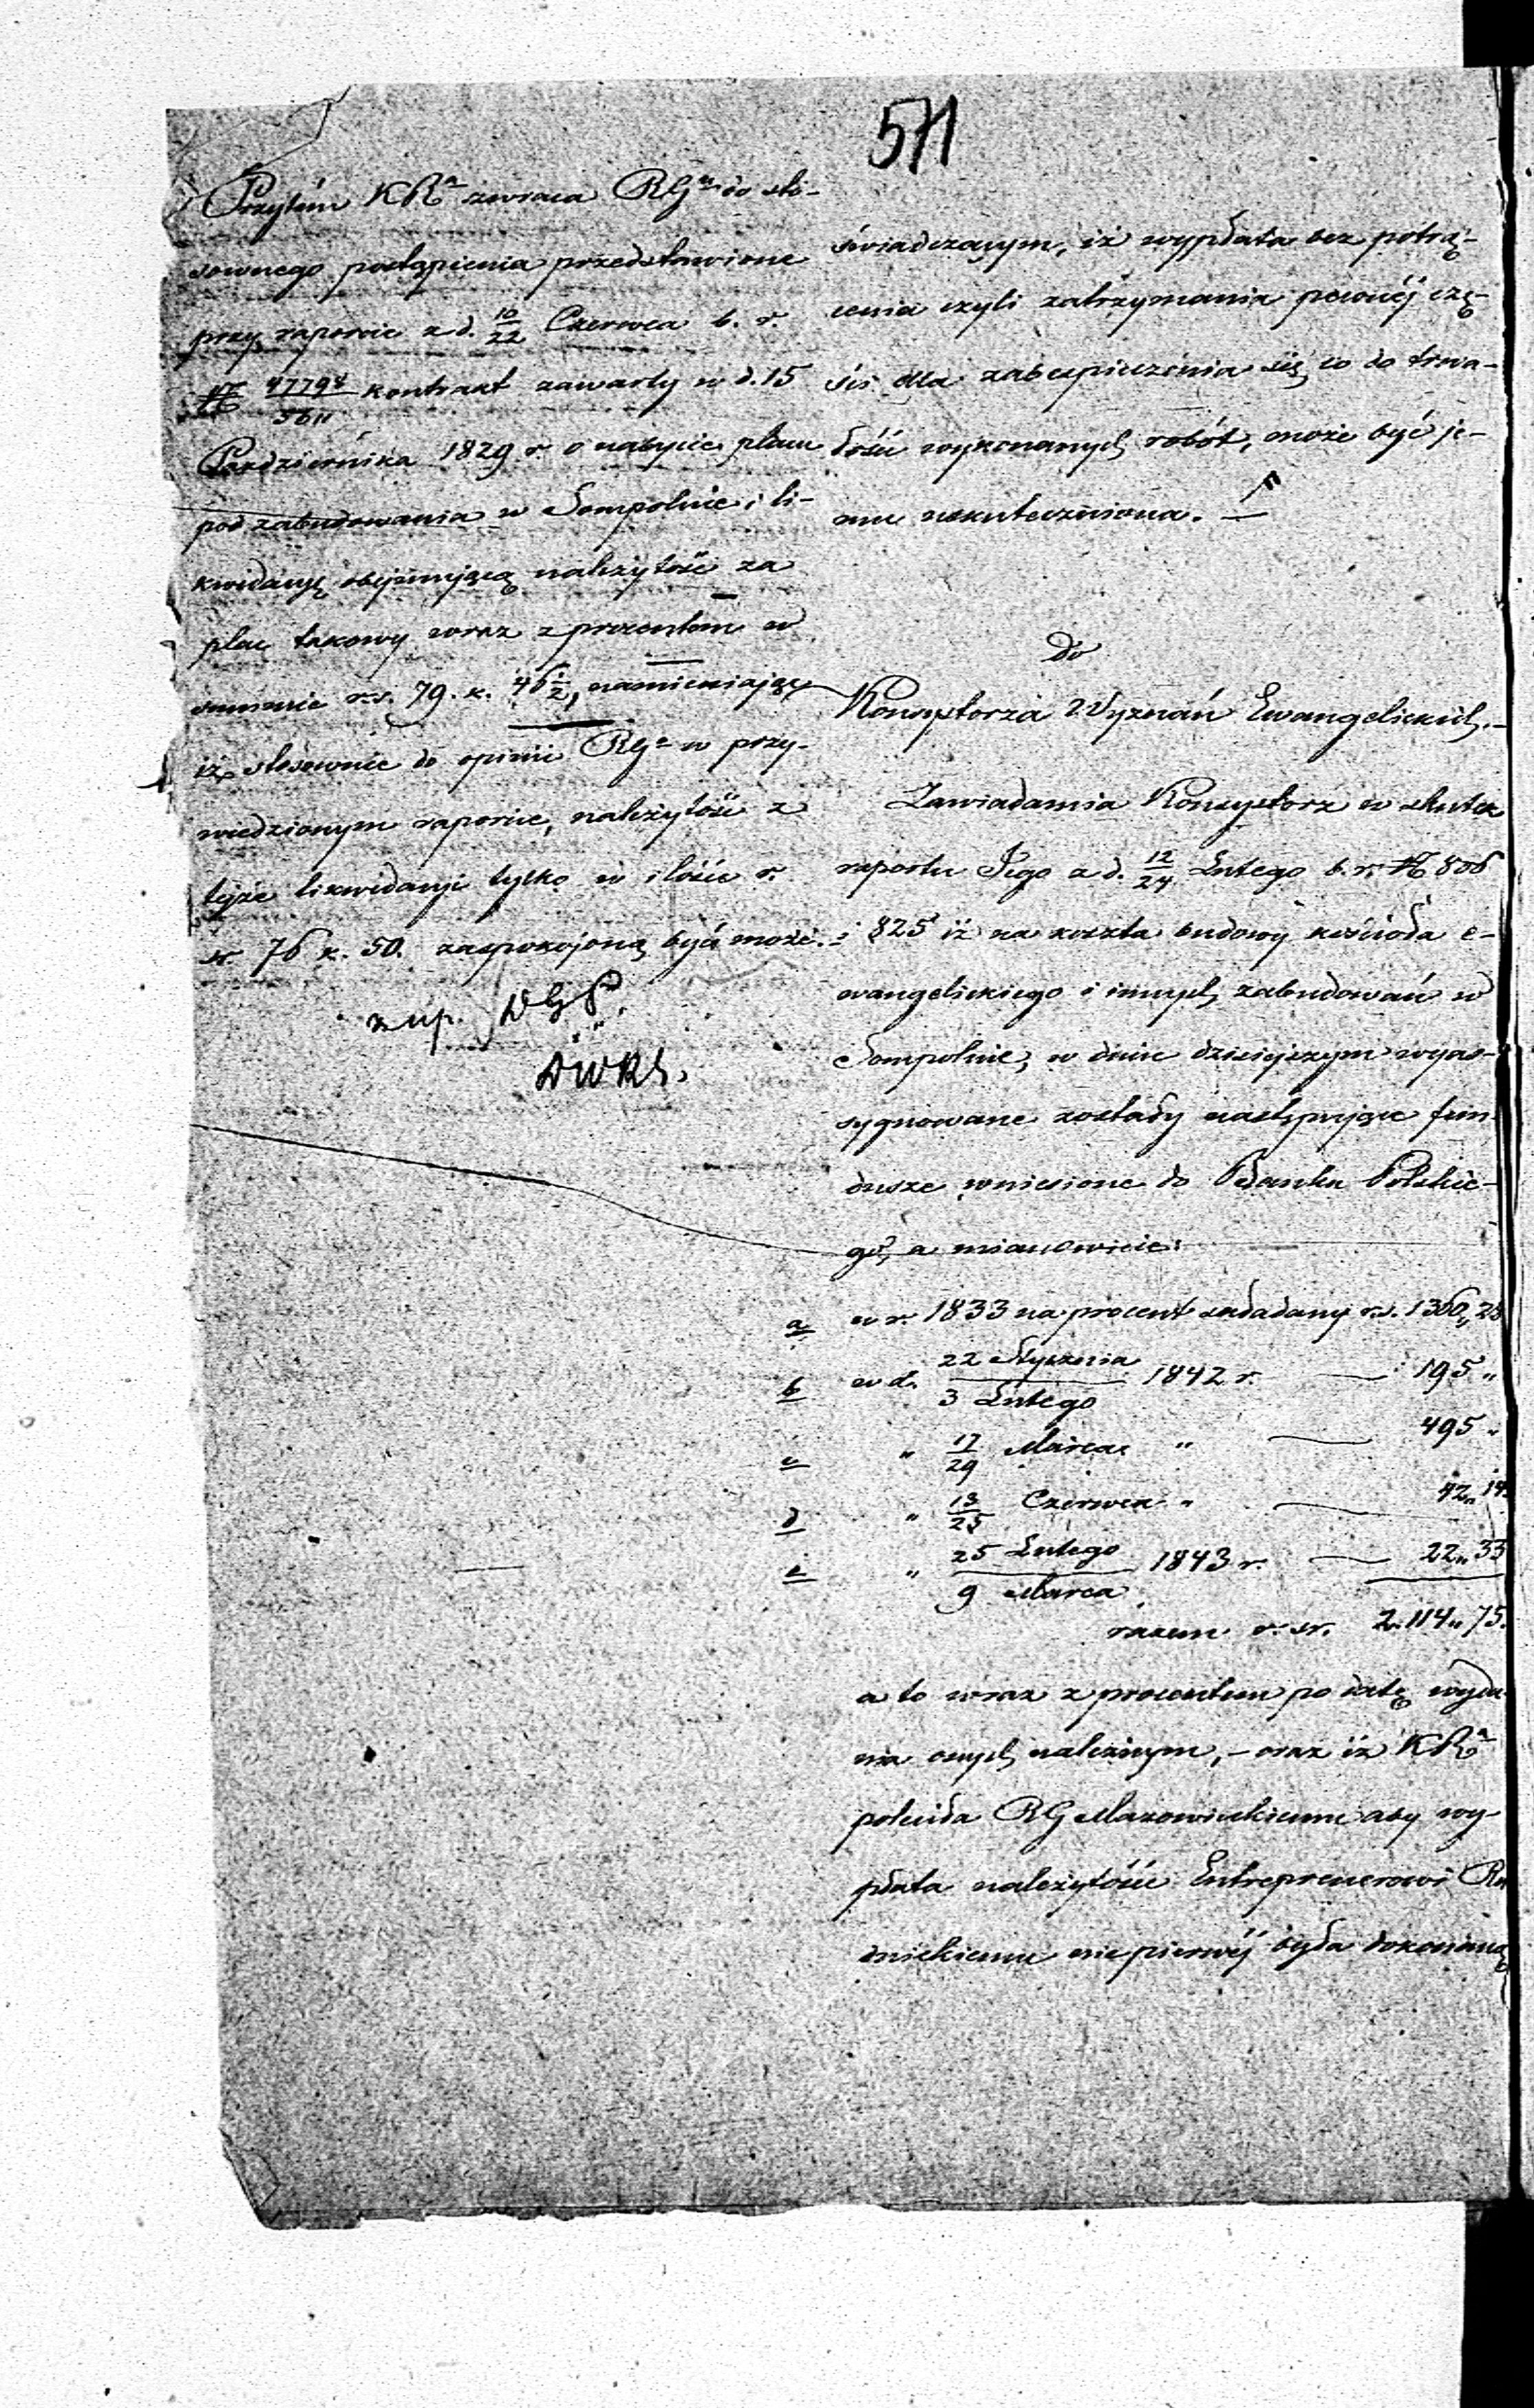 571
Przytém KRa zwraca RGu do sto-
sownego postąpienia przedstawione
przy raporcie z d. 10/22 Czerwca b. r.
№ 47798/3611 kontrakt zawarty w d. 15
Października 1829 r o nabycie placu
pod zabudowania w Sompolnie i li-
kwidacyę obejmującą należytość za
plac takowy wraz z procentem w
summie r.s. 79. k. 46½, namieniając
iż stosownie do opinii RGo w przy-
wiedzionym raporcie, należytość z
tejże likwidacyi tylko w ilości r.
sr. 76 k. 50. zaspokojoną być może.
z up. DGP.
DWRS.
świadczającym, iż wypłata bez potrą-
cenia czyli zatrzymania pewnéj czę-
ści dla zabezpieczenia się co do trwa-
łości wykonanych robót, może być je-
mu uskuteczniona.
do
Konsystorza Wyznań Ewangelickich.
Zawiadamia Konsystorz w skutek
raportu Jego z d. 12/24 Lutego b. r. № 806
i 825 iż na koszta budowy kościoła e-
wangelickiego i innych zabudowań w
Sompolnie, w dniu dzisiejszym wyas-
sygnowane zostały następujące fun-
dusze wniesione do Banku Polskie-
go, a mianowicie:
a w r. 1833 na procent składany r.s. 1360„ 28
b w d. 22 Stycznia/3 Lutego 1842 r. — 195 „
c „ 17/29 Marca „ — 495 „
d „ 13/25 Czerwca „ — 42„ 14
e „ 25 Lutego/9 Marca 1843 r. — 22„ 33
razem r. sr. 2.114„ 75.
a to wraz z procentem po datę wyda-
nia onych należnym, – oraz iż KRa
poleciła RG Mazowieckiemu aby wy-
płata należytości Entreprenerowi Ru
dnickiemu nie pierwéj była dokonaną